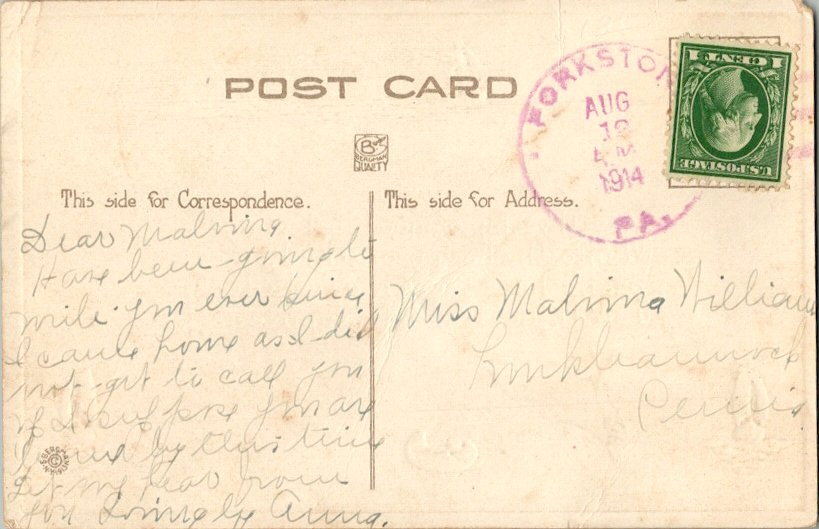 POST CARD
FORKSTON
AUG
A.M
1914
PA.
1 CENT 1
U.S. POSTAGE
B
BERGMAN
QUALITY
This side for Correspondence.
Dear Malvina
Have been going to
write you ever since
I came home as I did
not get to call you
I suppose you are
home by this time
Let me hear from
you Lovingly Anna.
This side for Address.
Miss Malvina William
Tunkhannock
Penna